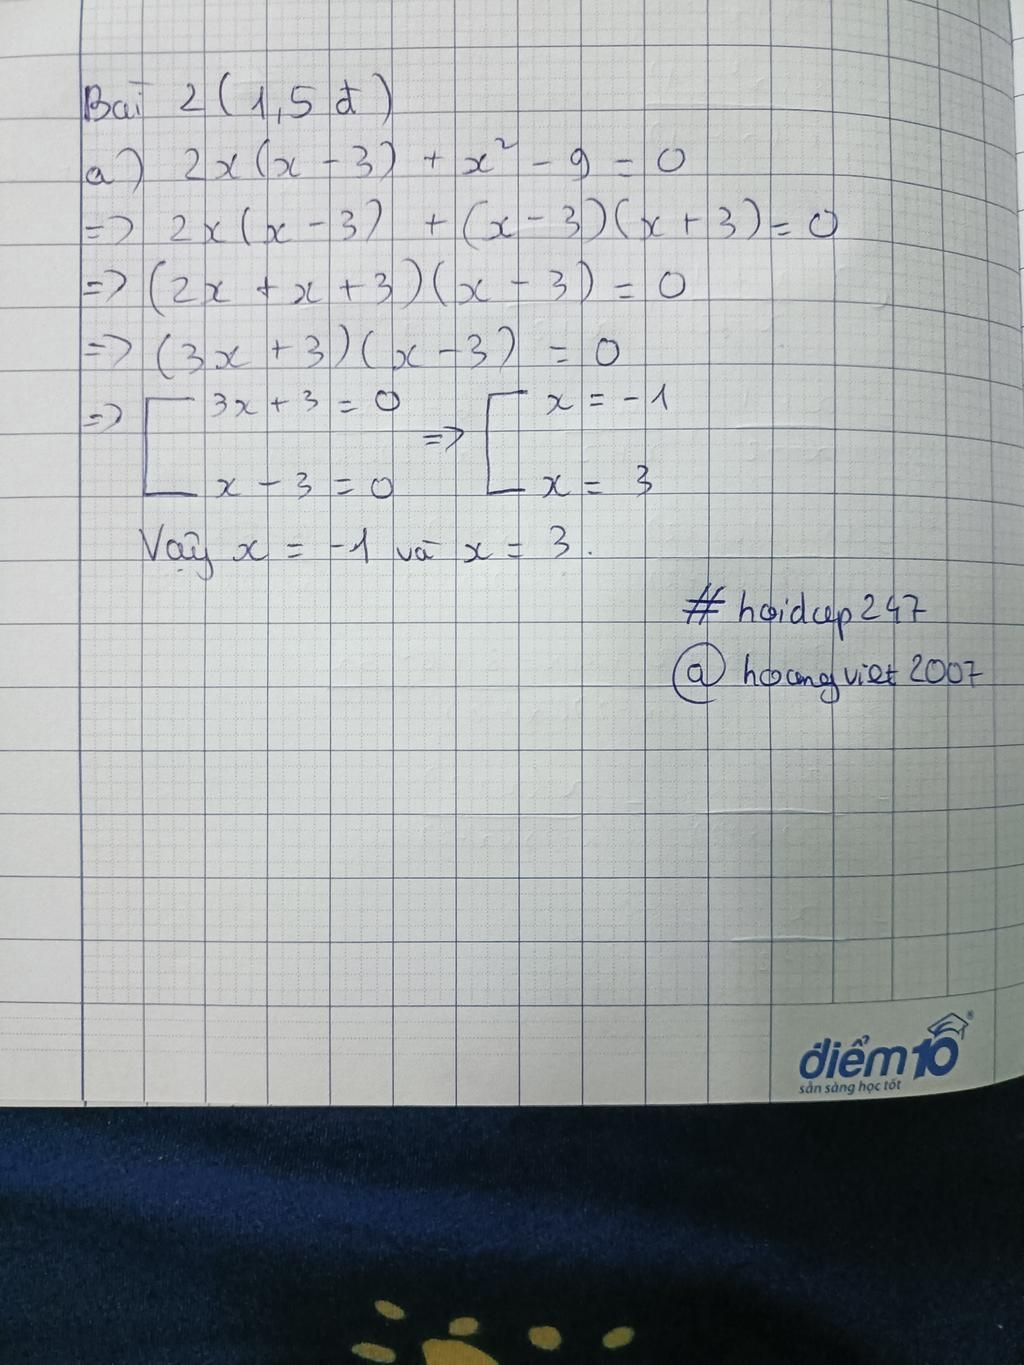 Bài 2 (1,5 đ)
a) 2x(x - 3) + x² - 9 = 0
=> 2x(x - 3) + (x - 3)(x + 3) = 0
=> (2x + x + 3)(x - 3) = 0
=> (3x + 3)(x - 3) = 0
=> [ 3x + 3 = 0 => [ x = -1
x - 3 = 0 x = 3
Vậy x = -1 và x = 3.
#hoidap247
@hoangviet2007
điểm10®
sẵn sàng học tốt